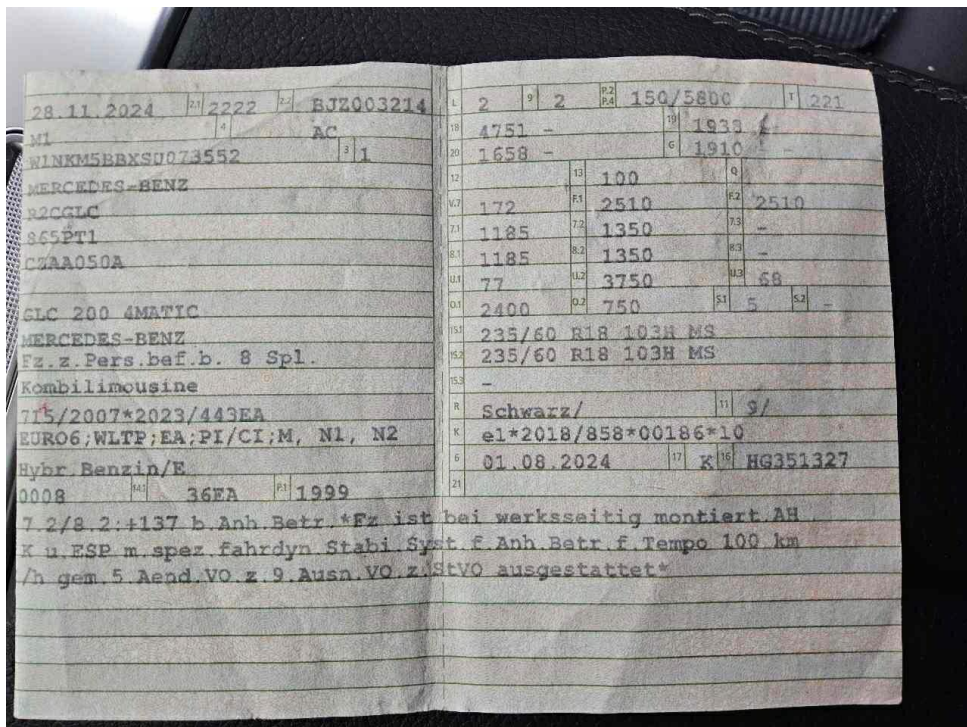 28.11.2024 2.1 2222 2.2 BJZ003214
M1 4 AC
W1NKM5BBXSU073552 3 1
MERCEDES-BENZ
R2CGLC
865PT1
CZAA050A
GLC 200 4MATIC
MERCEDES-BENZ
Fz.z.Pers.bef.b. 8 Spl.
Kombilimousine
715/2007*2023/443EA
EURO6;WLTP;EA;PI/CI;M, N1, N2
Hybr.Benzin/E
0008 14.1 36EA P.1 1999
L 2 9 2 P.2 P.4 150/5800 T 221
18 4751 - 19 1933
20 1658 - G 1910 -
12 13 100 Q
V.7 172 F.1 2510 F.2 2510
7.1 1185 7.2 1350 7.3 -
8.1 1185 8.2 1350 8.3 -
U.1 77 U.2 3750 U.3 68
O.1 2400 O.2 750 S.1 5 S.2 -
15.1 235/60 R18 103H MS
15.2 235/60 R18 103H MS
15.3 -
R Schwarz/ 11 9/
K e1*2018/858*00186*10
6 01.08.2024 17 K 16 HG351327
21
7.2/8.2:+137 b.Anh.Betr.*Fz ist bei werksseitig montiert.AH
K u.ESP m.spez.fahrdyn.Stabi.Syst.f.Anh.Betr.f.Tempo 100 km
/h gem.5.Aend.VO.z.9.Ausn.VO.z.StVO ausgestattet*